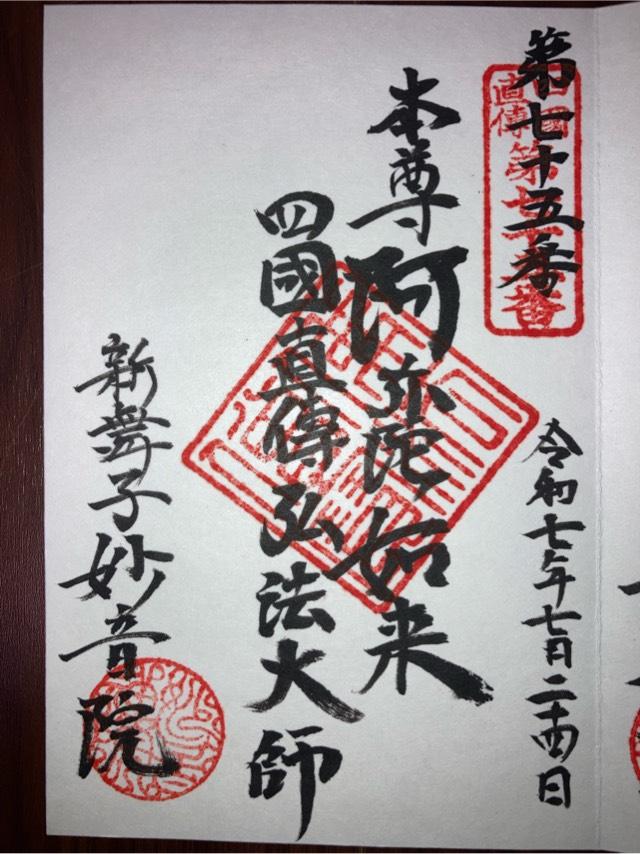 第七十五番
四國
直傳
第七十五番
令和七年七月二十四日
本尊阿弥陀如来
四國直傳弘法大師
新舞子妙音院